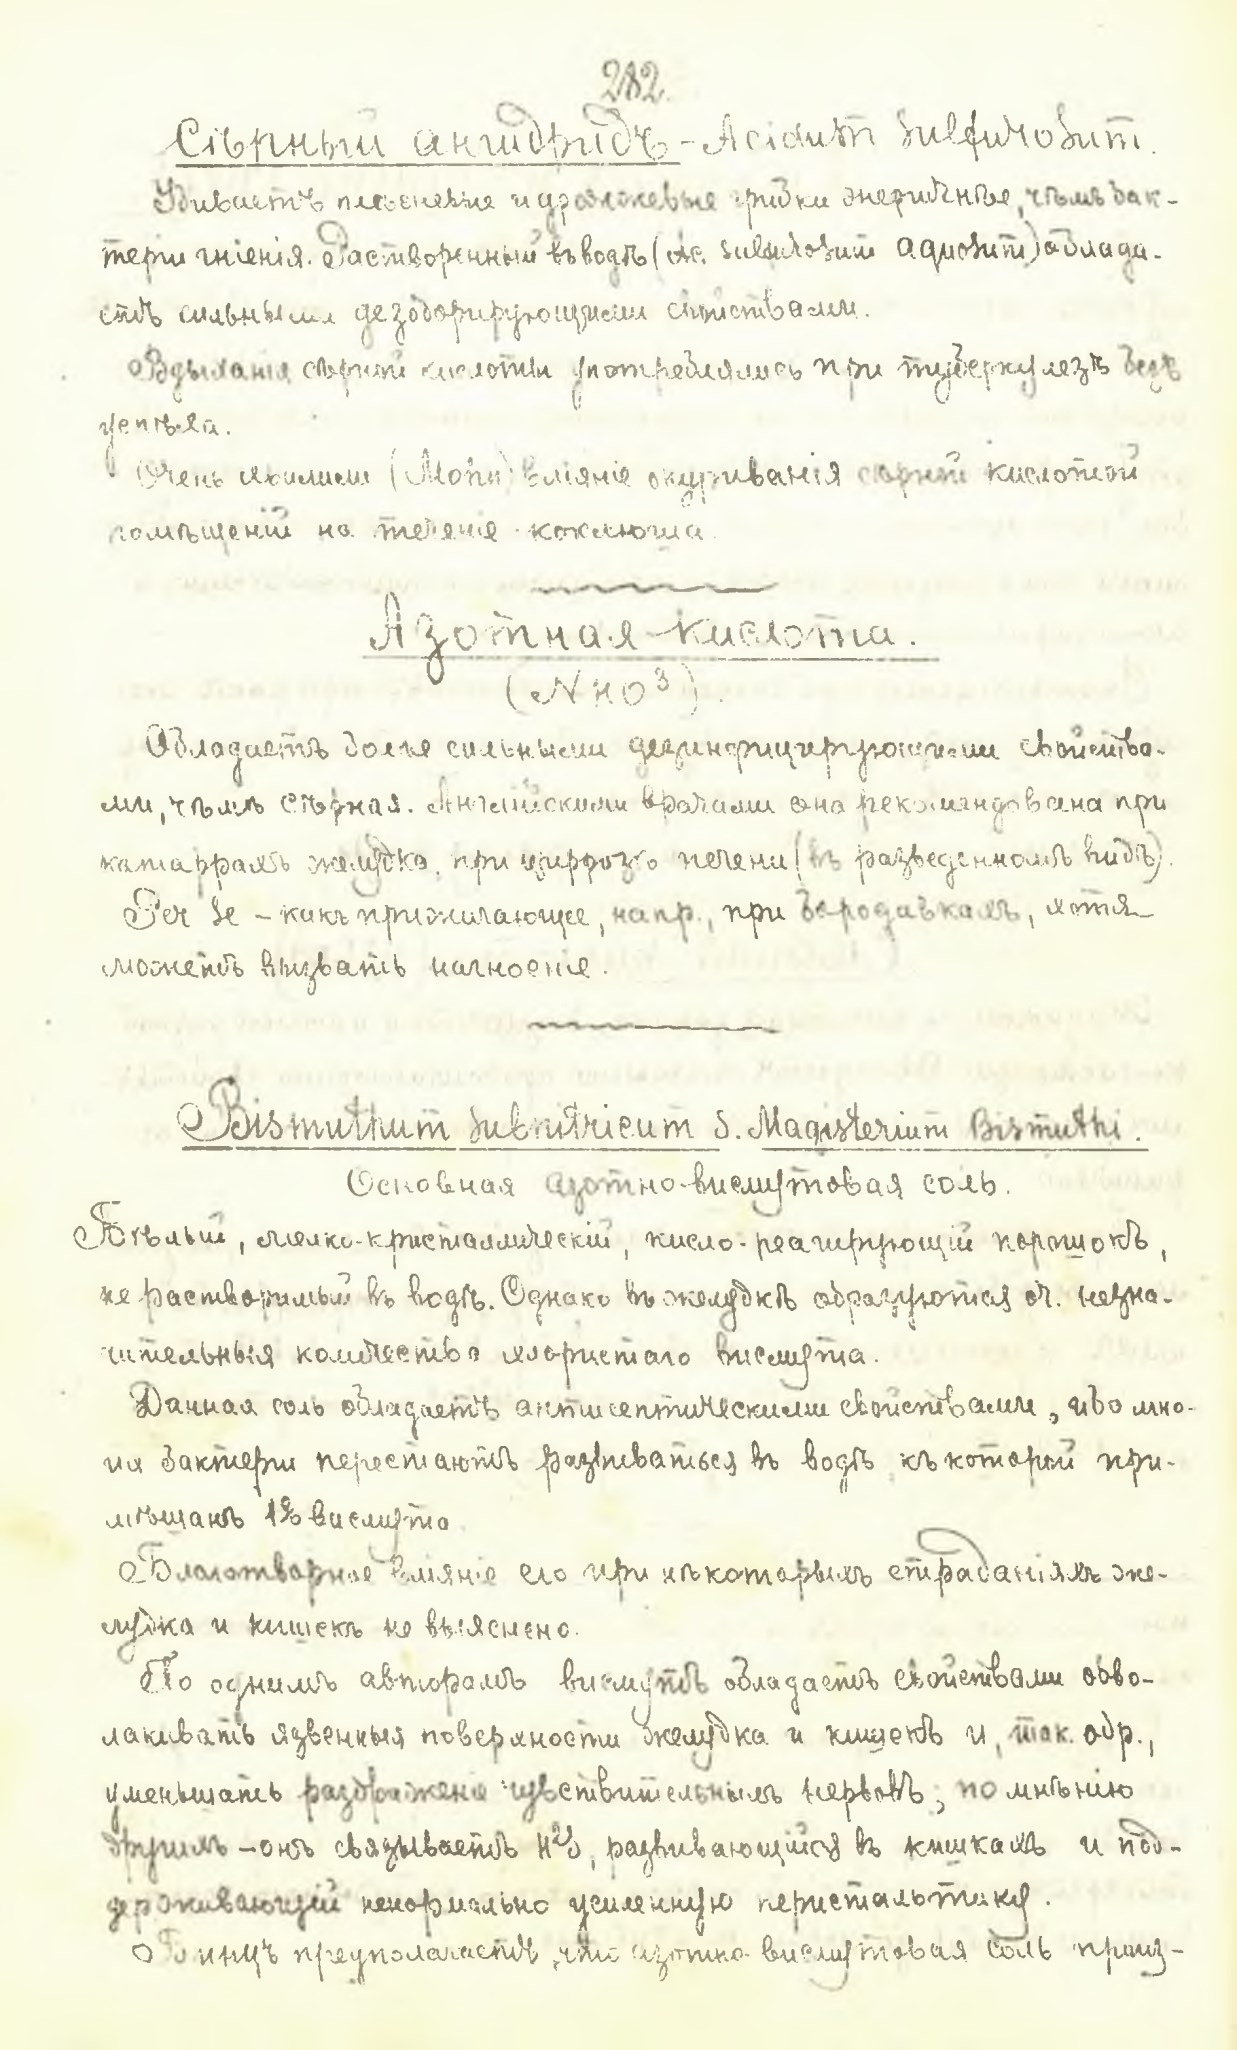 282
Сѣрный ангидридъ - Acidum sulfurosum.
Убиваетъ плесневые и дрожжевые грибки энергичнѣе, чѣмъ бак-
терiи гнiенiя. Растворенный въ водѣ (Ac. sulfurosum aquosum) облада-
етъ сильными дезодорирующими свойствами.
Вдыханiя сѣрной кислоты употреблялись при туберкулезѣ безъ
успѣха.
Очень хвалили (Mohn) влiянiе окуриванiя сѣрной кислотой
помѣщенiй на теченiе коклюша.
Азотная кислота.
(NHO³).
Обладаетъ болѣе сильными дезинфицирующими свойства-
ми, чѣмъ сѣрная. Англiйскими врачами она рекомендована при
катаррахъ желудка, при циррозѣ печени (въ разведенномъ видѣ).
Per se - какъ прижигающее, напр., при бородавкахъ, хотя
можетъ вызвать нагноенiе.
Bismuthum subnitricum s. Magisterium Bismuthi.
Основная азотно-висмутовая соль.
Бѣлый, мелко-кристаллическiй, кисло-реагирующiй порошокъ,
не растворимый въ водѣ. Однако въ желудкѣ образуются оч. незна-
чительныя количества хлористаго висмута.
Данная соль обладаетъ антисептическими свойствами, ибо мно-
гiя бактерiи перестаютъ развиваться въ водѣ, къ которой при-
мѣшанъ 1% висмута.
Благотворное влiянiе его при нѣкоторыхъ страданiяхъ же-
лудка и кишекъ не выяснено.
По однимъ авторамъ висмутъ обладаетъ свойствами обво-
лакивать язвенныя поверхности желудка и кишекъ и, так. обр.,
уменьшать раздраженiе чувствительныхъ нервовъ; по мнѣнiю
другихъ - онъ связываетъ H²S, развивающiйся въ кишкахъ и под-
держивающiй ненормально усиленную перистальтику.
Бинцъ предполагаетъ, что азотно-висмутовая соль произ-